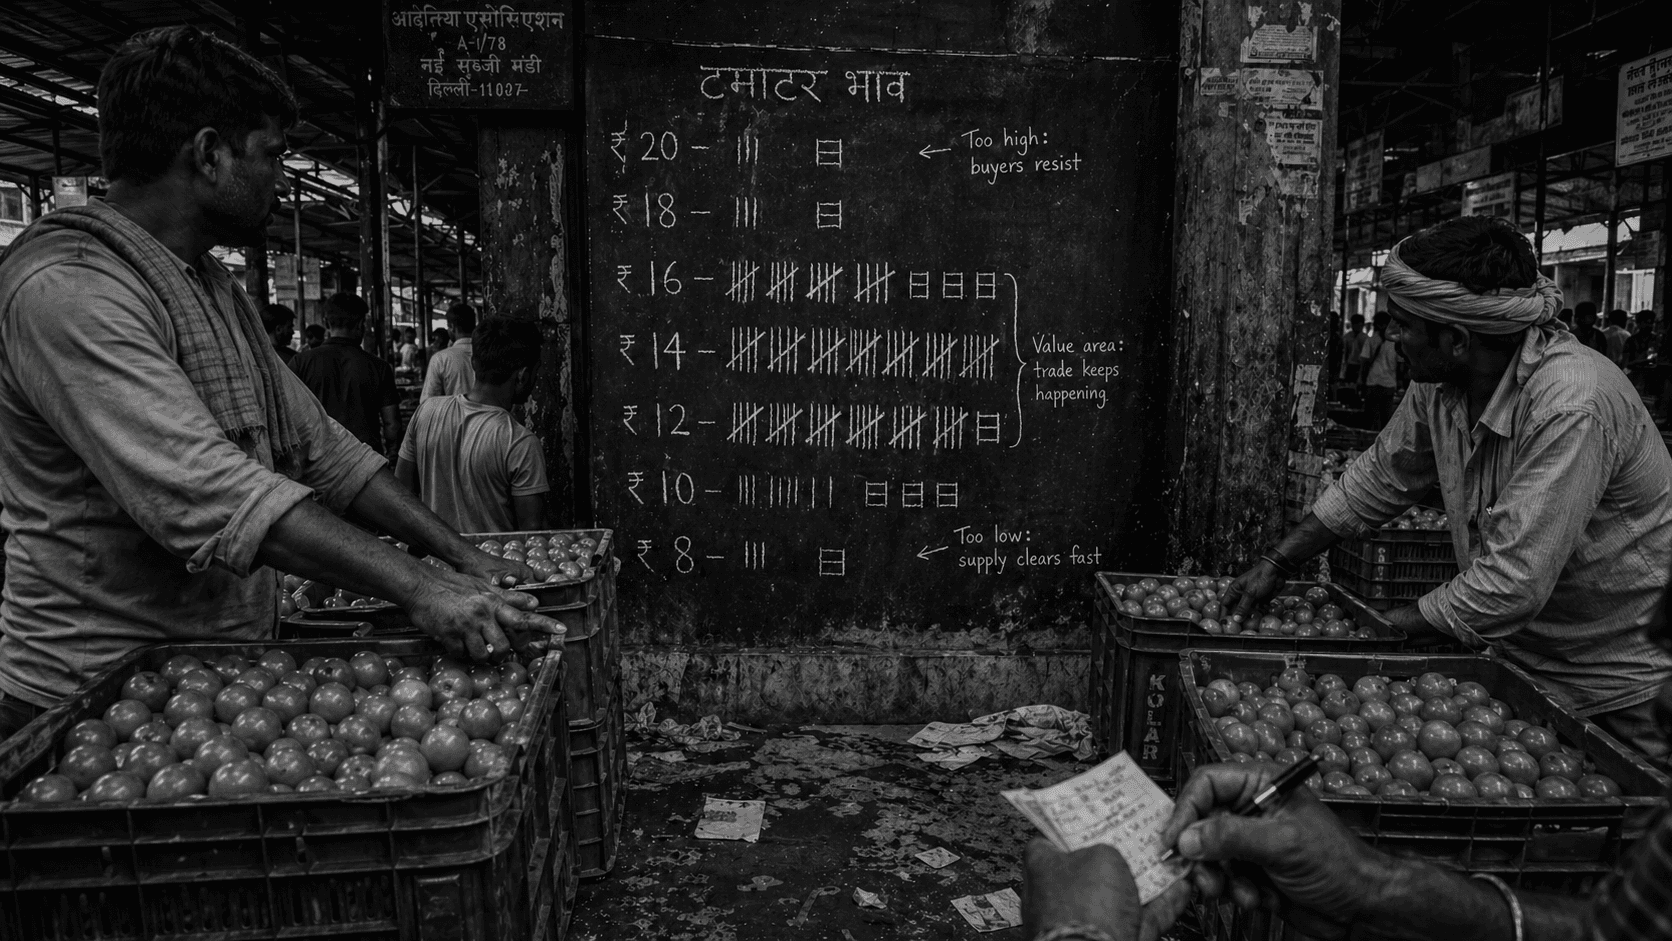 आढ़तिया एसोसिएशन
A-1/78
नई सब्जी मंडी
दिल्ली-11027-
टमाटर भाव
₹ 20 –
Too high:
buyers resist
₹ 18 –
₹ 16 –
₹ 14 –
Value area:
trade keeps
happening
₹ 12 –
₹ 10 –
₹ 8 –
Too low:
supply clears fast
KOLAR